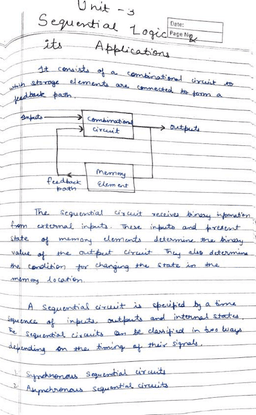 Unit - 3
Sequential Logic
Date:
Page No.
its Applications
It consists of a combinational circuit to
which storage elements are connected to form a
feedback path
Inputs
Combinational
Circuit
outputs
Memory
Element
feedback
path
The sequential circuit receives binary information
from external inputs. These inputs and present
state of memory elements determine the binary
value of the output circuit. They also determine
the condition for changing the state in the
memory location
A Sequential circuit is specified by a time
sequence of inputs outputs and internal states.
The sequential circuits can be classified in two ways
depending on the timing of their signals.
1. Synchronous Sequential circuits
2. Asynchronous sequential circuits